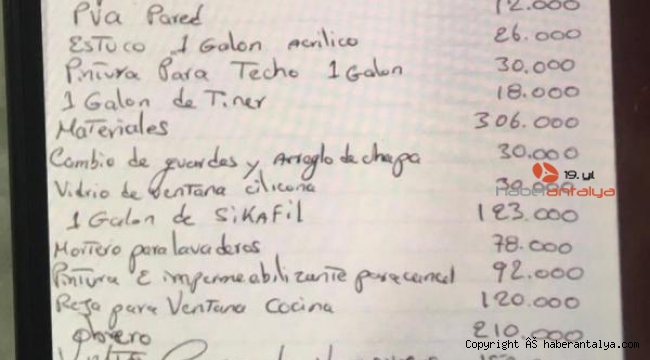 Pva Pared 12.000
Estuco 1 Galon Acrilico 26.000
Pintura Para Techo 1 Galon 30.000
1 Galon de Tiner 18.000
Materiales 306.000
Cambio de guardas y Arroglo de chapa 30.000
Vidrio de ventana cilicona 30.000
1 Galon de SiKAFil 123.000
Mortero para lavaderos 78.000
Pintura E impermeabilizante para canal 92.000
Reja para Ventana Cocina 120.000
obrero 210.000
19. yıl
haberantalya
Copyright ÂŠ haberantalya.com